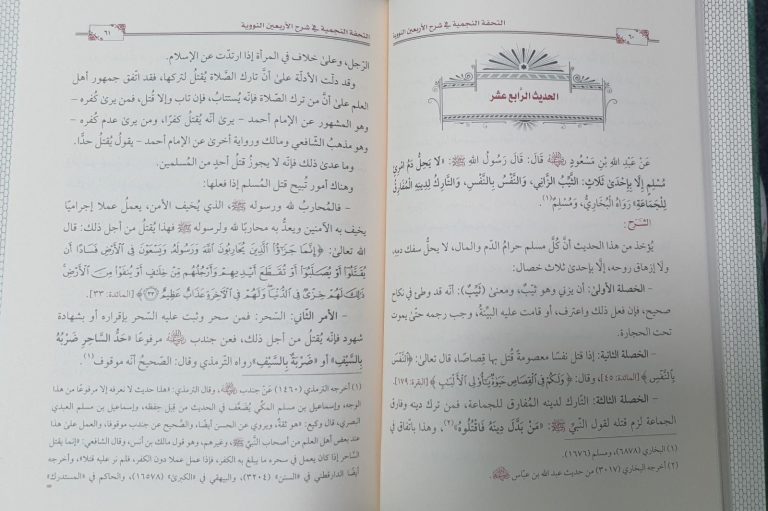 التحفة النجمية في شرح الأربعين النووية
٦٠
الحديث الرابع عشر
عَنْ عَبْدِ اللهِ بْنِ مَسْعُودٍ ﵁ قَالَ: قَالَ رَسُولُ اللهِ ﷺ: «لا يَحِلُّ دَمُ امْرِئٍ
مُسْلِمٍ إِلَّا بِإِحْدَى ثَلَاثٍ: الثَّيِّبُ الزَّانِي، وَالنَّفْسُ بِالنَّفْسِ، وَالتَّارِكُ لِدِينِهِ الْمُفَارِقُ
لِلْجَمَاعَةِ» رَوَاهُ الْبُخَارِيُّ، وَمُسْلِمٌ(١).
الشرح:
يُؤخذ من هذا الحديث أنَّ كُلَّ مسلم حرامُ الدّم والمال، لا يحلُّ سفك دمِه
ولا إزهاق روحه، إلَّا بإحدى ثلاث خصال:
– الخصلة الأولى: أن يزني وهو ثَيِّبٌ، ومعنى (ثَيِّب): أنه قد وطئ في نكاح
صحيح، فإن فعل ذلك واعترف، أو قامت عليه البيِّنةُ، وجب رجمه حتَّى يموت
تحت الحجارة.
– الخصلة الثانية: إذا قتل نفسًا معصومةً قُتل بها قِصاصًا، قال تعالى: ﴿النَّفْسَ
بِالنَّفْسِ﴾ [المائدة: ٤٥]، وقال: ﴿وَلَكُمْ فِي الْقِصَاصِ حَيَوٰةٌ يَٰٓأُو۟لِي الْأَلْبَٰبِ﴾ [البقرة: ١٧٩].
– الخصلة الثالثة: التّارك لدينه المُفارق للجماعة، فمن ترك دينه وفارق
الجماعة لزم قتله لقول النَّبيِّ ﷺ: «مَنْ بَدَّلَ دِينَهُ فَاقْتُلُوهُ»(٢)، وهذا باتّفاق في
(١) البخاري (٦٨٧٨)، ومسلم (١٦٧٦).
(٢) أخرجه البخاري (٣٠١٧) من حديث عبد الله بن عبّاس ﵄.
التحفة النجمية في شرح الأربعين النووية
٦١
الرّجل، وعلى خلاف في المرأة إذا ارتدّت عن الإسلام.
وقد دلّت الأدلّة على أنَّ تارك الصَّلاة يُقتلُ لتركها، فقد اتّفق جمهور أهل
العلم على أنَّ من ترك الصَّلاة فإنّه يُستتابُ، فإن تاب وإلا قتل، فمن يرى كفره –
وهو المشهور عن الإمام أحمد – يرى أنّه يُقتلُ كفرًا، ومن يرى عدم كفره –
وهو مذهبُ الشّافعي ومالك ورواية أخرى عن الإمام أحمد – يقولُ يُقتلُ حدًّا.
وما عدى ذلك فإنّه لا يجوزُ قتلُ أحدٍ من المُسلمين.
وهناك أمور تُبيح قتل المُسلم إذا فعلها:
– فالمُحاربُ لله ورسوله ﷺ، الذي يُخيف الأمن، يعملُ عملا إجراميًا
يخيف به الآمنين ويعدُّ به محاربًا لله ولرسوله ﷺ فهذا يُقتلُ من أجل ذلك: قال
الله تعالى: ﴿إِنَّمَا جَزَٰٓؤُا۟ الَّذِينَ يُحَارِبُونَ اللَّهَ وَرَسُولَهُ وَيَسْعَوْنَ فِي الْأَرْضِ فَسَادًا أَن
يُقَتَّلُوٓا۟ أَوْ يُصَلَّبُوٓا۟ أَوْ تُقَطَّعَ أَيْدِيهِمْ وَأَرْجُلُهُم مِّنْ خِلَٰفٍ أَوْ يُنفَوْا۟ مِنَ الْأَرْضِ
ذَٰلِكَ لَهُمْ خِزْيٌ فِي الدُّنْيَا وَلَهُمْ فِي الْأَخِرَةِ عَذَابٌ عَظِيمٌ ٣٣﴾ [المائدة: ٣٣].
– الأمر الثاني: السّحر: فمن سحر وثبت عليه السّحر بإقراره أو بشهادة
شهود فإنّه يُقتلُ من أجل ذلك، فعن جندب ﵁ مرفوعًا «حَدُّ السَّاحِرِ ضَرْبُهُ
بِالسَّيْفِ» أو «ضَرْبَةٌ بِالسَّيْفِ» رواه التّرمذي وقال: الصّحيحُ أنّه موقوف(١).
(١) أخرجه الترمذي (١٤٦٠) عَنْ جندب ﵁، وقال الترمذي: «هذا حديث لا نعرفه إلا مرفوعًا من هذا
الوجه، وإسماعيل بن مسلم المكّي يُضعَّف في الحديث من قِبل حِفظه، وإسماعيل بن مسلم العبدي
البصري، قال وكيع: هو ثقةٌ، ويروي عن الحسن أيضًا، والصّحيح عن جندب موقوفا، والعمل على هذا
عند بعض أهل العلم من أصحاب النَّبيِّ ﷺ وغيرهم، وهو قول مالك بن أنس، وقال الشافعي: «إنما يقتل
السَّاحر إذا كان يعمل في سحره ما يبلغ به الكفر، فإذا عمل عملا دون الكفر، فلم نر عليه قتلا»، وأخرجه
أيضا الدارقطني في «السنن» (٣٢٠٤)، والبيهقي في «الكبرى» (١٦٥٧٨)، والحاكم في «المستدرك»